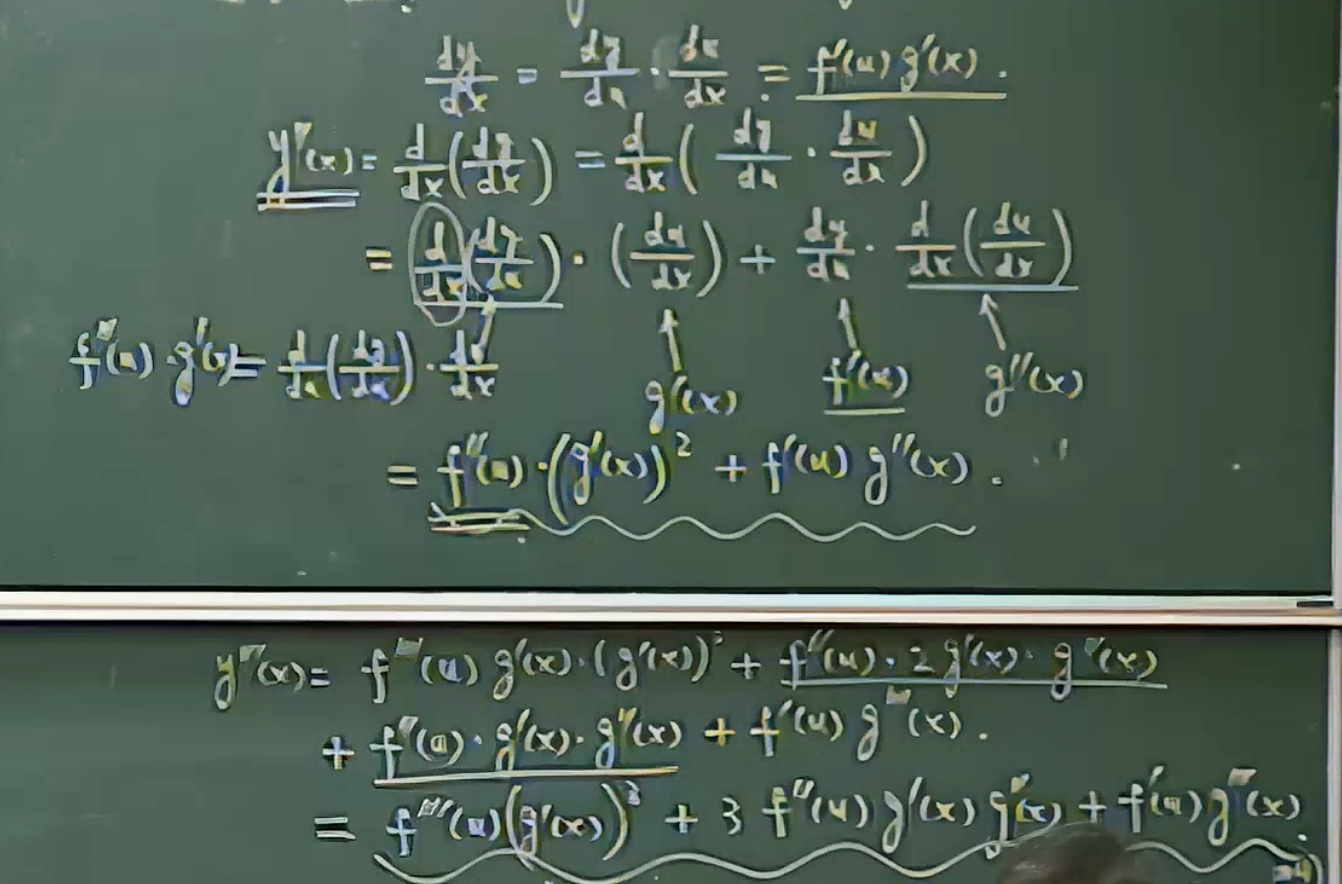 dy/dx = dy/du · du/dx = f'(u) g'(x).
y''(x) = d/dx (dy/dx) = d/dx ( dy/du · du/dx )
= (d/dx (dy/du)) · (du/dx) + dy/du · d/dx (du/dx)
f''(u) · g'(x) = d/du (dy/du) · du/dx
g'(x) f'(u) g''(x)
= f''(u) · (g'(x))² + f'(u) g''(x).
y'''(x) = f'''(u) g'(x) · (g'(x))² + f''(u) · 2 g'(x) · g''(x)
+ f''(u) · g'(x) · g''(x) + f'(u) g'''(x).
= f'''(u) (g'(x))³ + 3 f''(u) g'(x) g''(x) + f'(u) g'''(x).